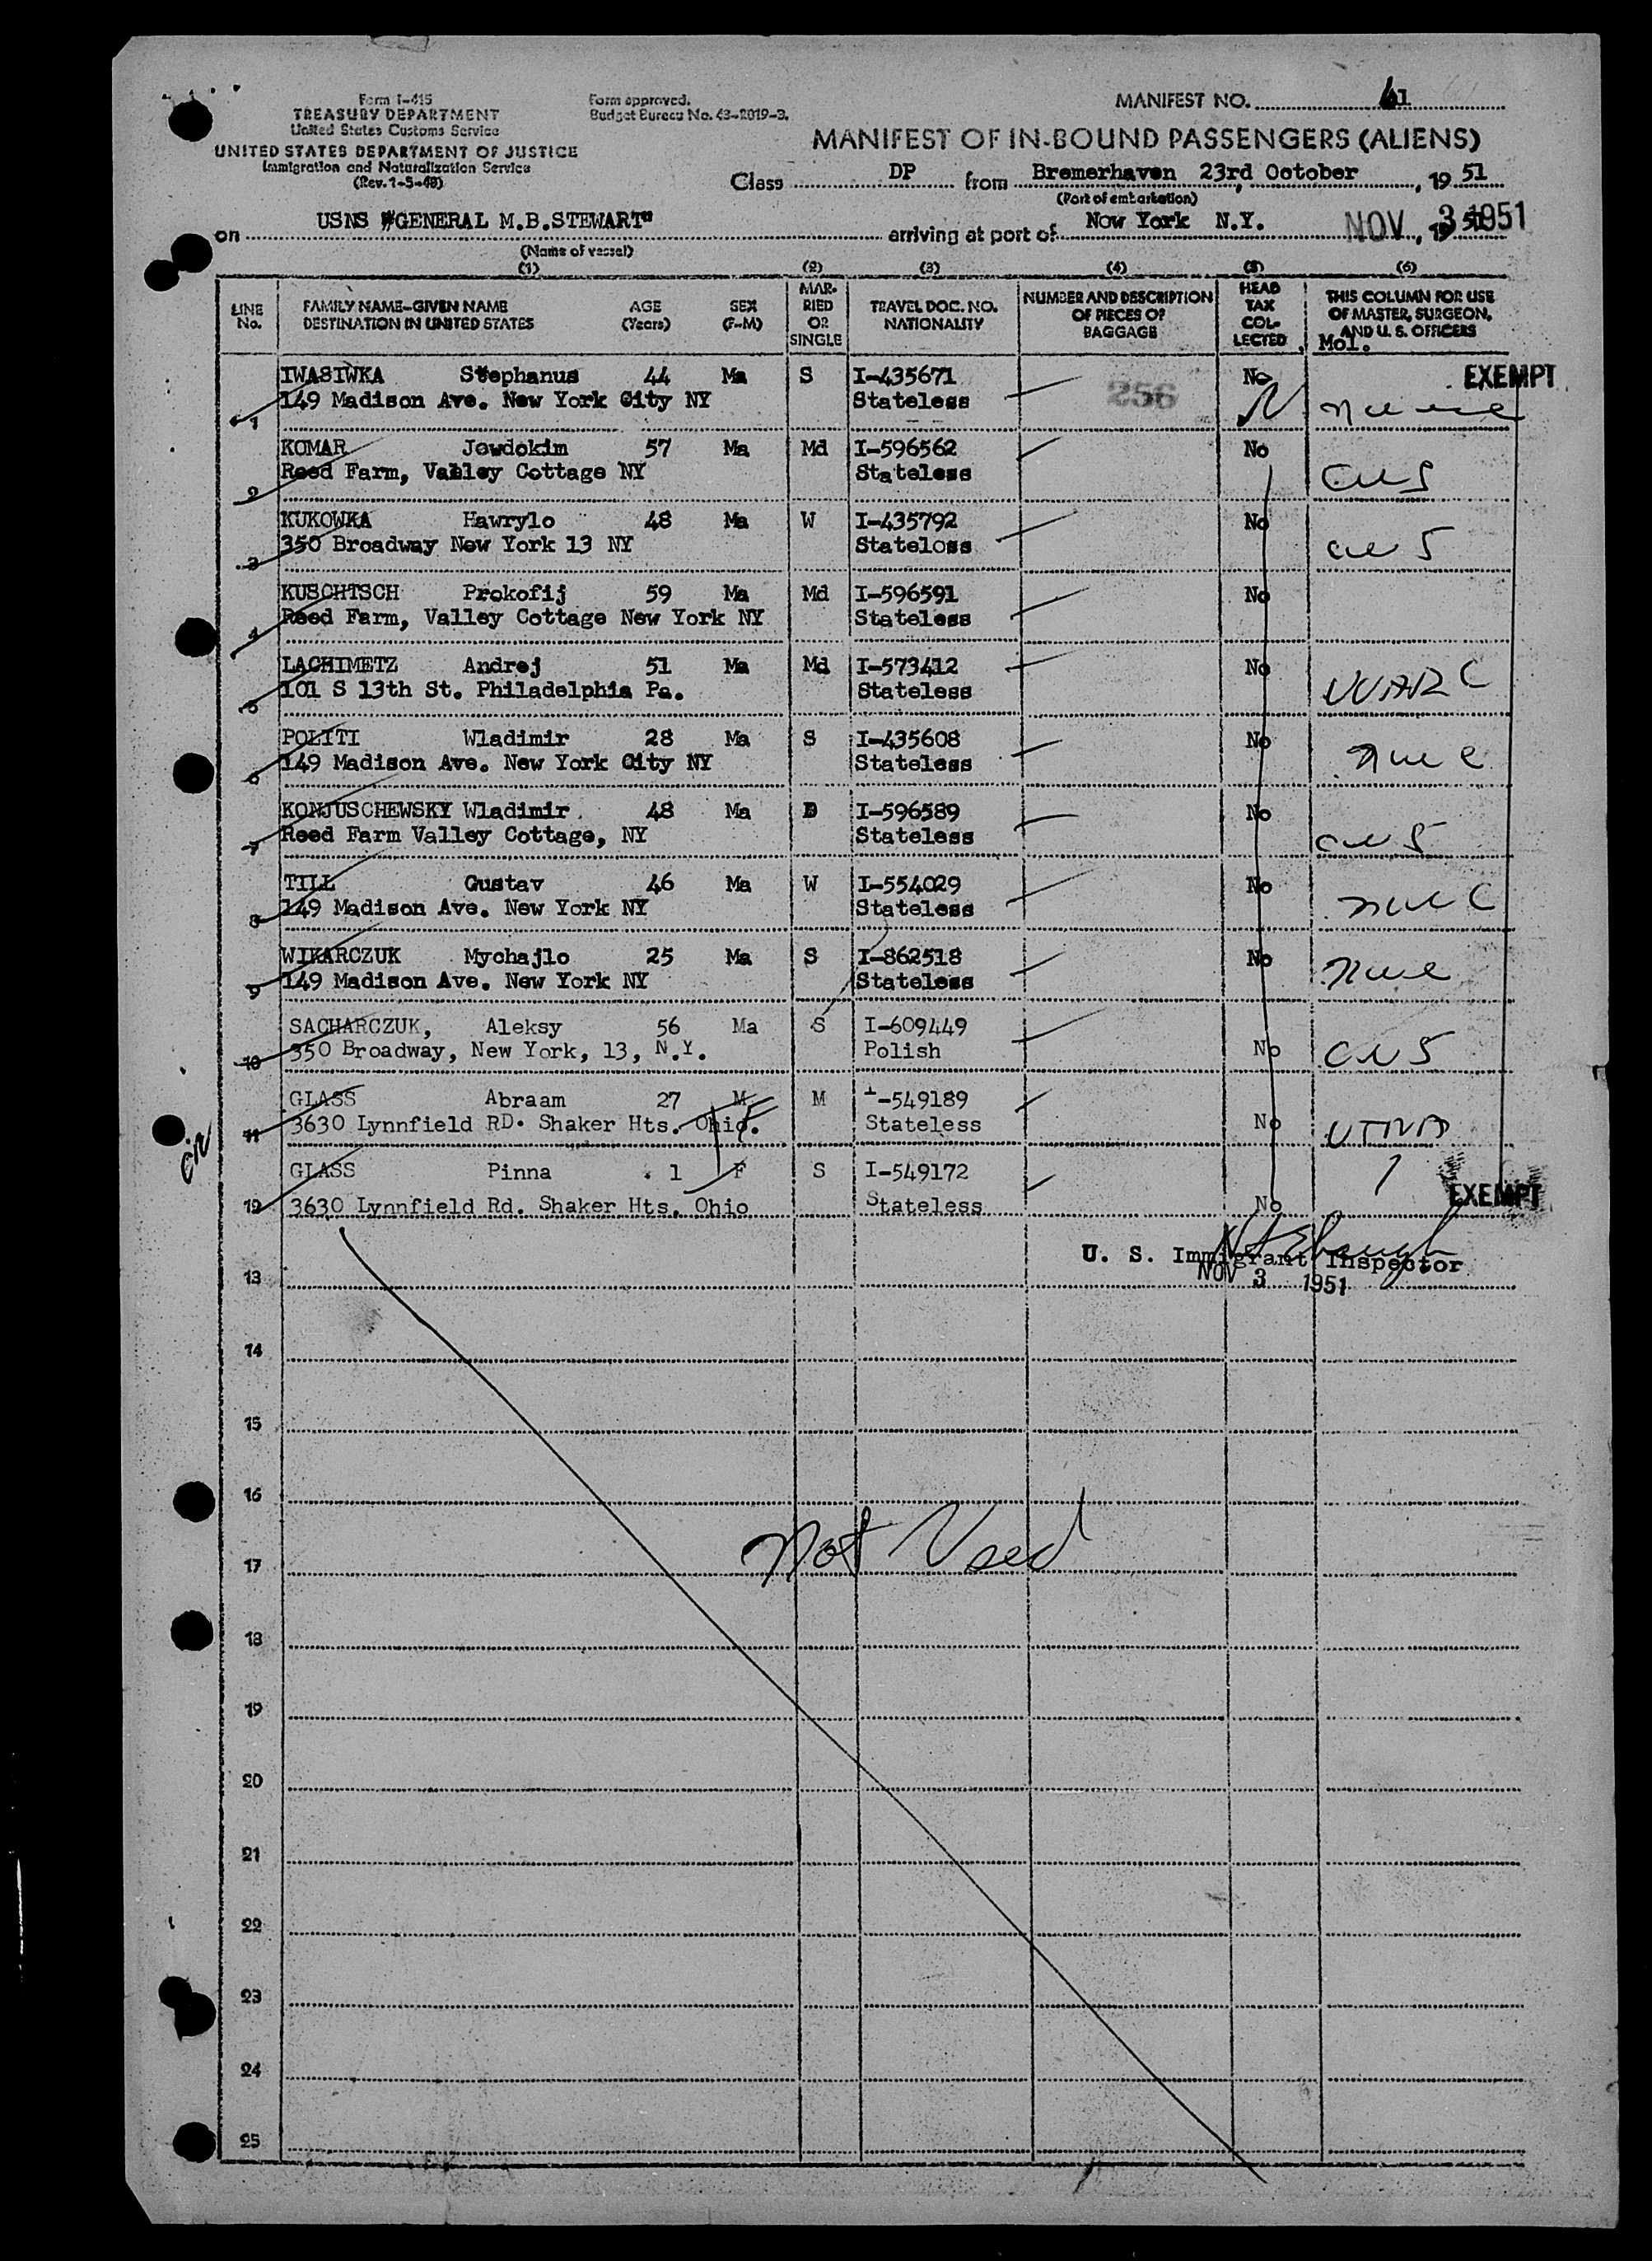 Form I-415
TREASURY DEPARTMENT
United States Customs Service
UNITED STATES DEPARTMENT OF JUSTICE
Immigration and Naturalization Service
(Rev. 1-5-49)
Form approved.
Budget Bureau No. 43-2019-3.
MANIFEST NO. 61
MANIFEST OF IN-BOUND PASSENGERS (ALIENS)
Class DP from Bremerhaven 23rd October, 19 51
(Port of embarkation)
on USNS "GENERAL M.B.STEWART" arriving at port of New York N.Y. NOV 3 1951, 19 51
(Name of vessel)
(1) (2) (3) (4) (5) (6)
LINE No. FAMILY NAME-GIVEN NAME DESTINATION IN UNITED STATES AGE (Years) SEX (F-M) MARRIED OR SINGLE TRAVEL DOC. NO. NATIONALITY NUMBER AND DESCRIPTION OF PIECES OF BAGGAGE HEAD TAX COLLECTED THIS COLUMN FOR USE OF MASTER, SURGEON, AND U. S. OFFICERS
EXEMPT
IWASIWKA Stephanus 44 Ma S I-435671 256 No
1 149 Madison Ave. New York City NY Stateless
KOMAR Jewdokim 57 Ma Md I-596562 No
2 Reed Farm, Valley Cottage NY Stateless
KUKOWKA Hawrylo 48 Ma W I-435792 No
3 350 Broadway New York 13 NY Stateloss
KUSCHTSCH Prokofij 59 Ma Md I-596591 No
4 Reed Farm, Valley Cottage New York NY Stateless
LACHIMETZ Andrej 51 Ma Md I-573412 No
5 101 S 13th St. Philadelphia Pa. Stateless
POLITI Wladimir 28 Ma S I-435608 No
6 149 Madison Ave. New York City NY Stateless
KONJUSCHEWSKY Wladimir 48 Ma D I-596589 No
7 Reed Farm Valley Cottage, NY Stateless
TILL Gustav 46 Ma W I-554029 No
8 149 Madison Ave. New York NY Stateless
WIKARCZUK Mychajlo 25 Ma S I-862518 No
9 149 Madison Ave. New York NY Stateless
SACHARCZUK, Aleksy 56 Ma S I-609449
10 350 Broadway, New York, 13, N.Y. Polish No
GLASS Abraam 27 M F M I-549189
11 3630 Lynnfield RD. Shaker Hts. Ohio. Stateless No
GLASS Pinna 1 F S I-549172
12 3630 Lynnfield Rd. Shaker Hts. Ohio Stateless No EXEMPT
U. S. Immigrant Inspector
13 NOV 3 1951
14
15
16
Not Used
17
18
19
20
21
22
23
24
25